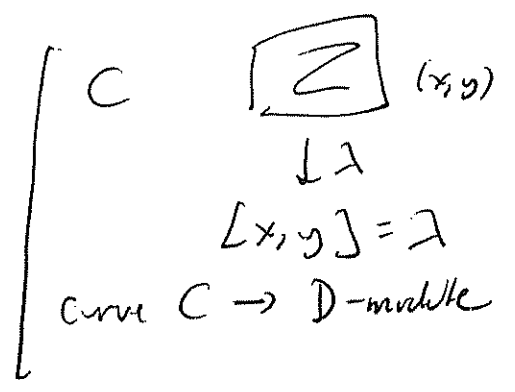 C Z (x,y)
↓ λ
[x,y] = λ
curve C → D-module